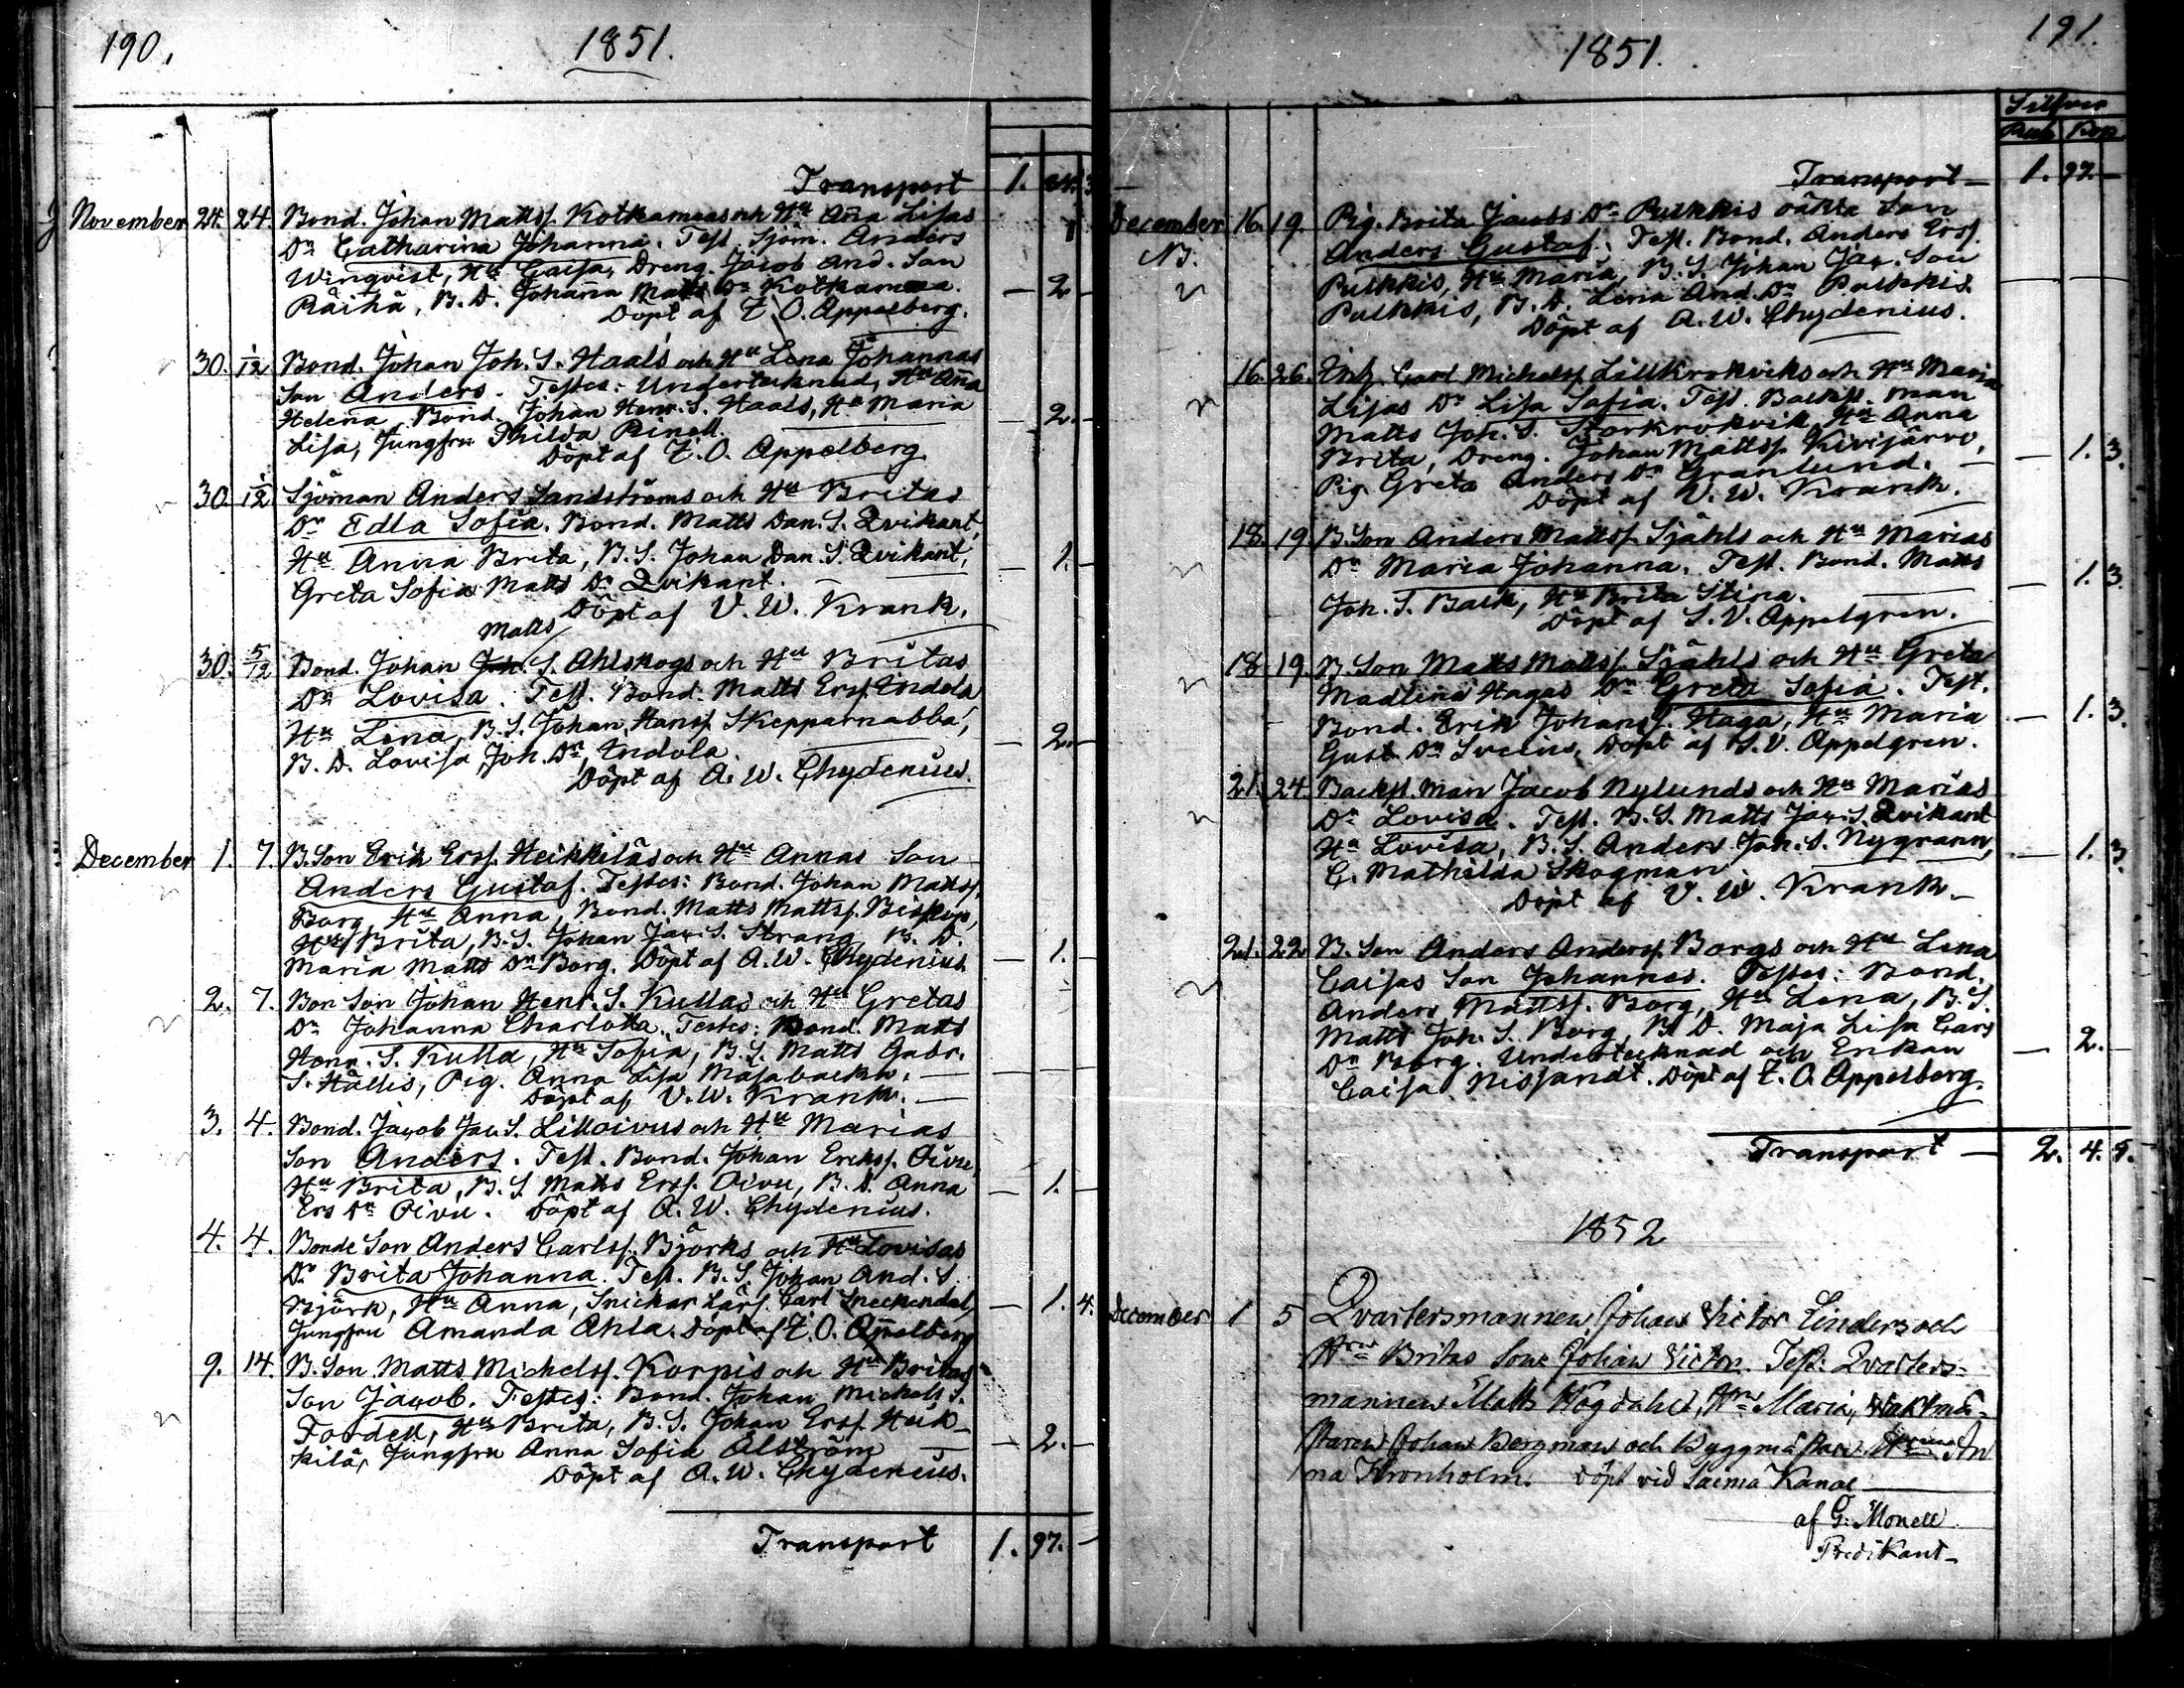 190.
1851.
Transport 1.
November 24. 24. Bond. Johan Mattss. Kotkamaas och Hu Aña Lisas
Dr Catharina Johanna. Test. Sjöm. Anders
Winqvist, Hu Caisa, Dreng. Jacob And. Son
Räihä, B. D. Johanna Matts Dr Kotkamaa. — 2 —
Döpt af Z. O. Appelberg.
30. 1/12 Bond. Johan Joh. S. Haals och Hu Lena Johannas
Son Anders. Testes: Undertecknad, Hu Aña
Helena, Bond. Johan Henr. S. Haals, Hu Maria — 2. —
Lisa, Jungfru Thilda Rinell.
Döpt af Z. O. Appelberg.
30. 1/12 Sjöman Anders Sandströms och Hu Britas
Dr Edla Sofia. Bond. Matts Dan. S. Qvikant,
Hu Anna Brita, B. S. Johan Dan. S. Qvikant, — 1. —
Greta Sofia Matts Dr Qvikant.
Döpt af V. W. Krank.
Matts
30. 5/12 Bond. Johan Joh. S. Ahlskogs och Hu Britas
Dr Lovisa. Test. Bond. Matts Erss. Indola
Hu Lena, B. S. Johan Hanss. Skepparnabba, — 2. —
B. D. Lovisa Joh. Dr Indola
Döpt af A. W. Chydenius.
December 1. 7. B. Son Erik Erss. Heikkiläs och Hu Annas Son
Anders Gustaf. Testes: Bond. Johan Mattss.
Borg, Hu Anna, Bond. Matts Mattss. Biskop,
Hu Brita, B. S. Johan Jac. S. Strang, B. D.
Maria Matts Dr Borg. Döpt af A. W. Chydenius — 1. —
2. 7. Bon Son Johan Henr. S. Kullas och Hu Gretas
Dr Johanna Charlotta. Testes: Bond. Matts
Henr. S. Kulla, Hu Sofia, B. S. Matts Gabr.
S. Hällis, Pig. Anna Lisa Masabacka. —
Döpt af V. W. Krank. —
3. 4. Bond. Jacob Jac. S. Lilloivus och Hu Marias
Son Anders. Test. Bond. Johan Erikss. Oivu,
Hu Brita, B. S. Matts Erss. Oivu, B. D. Anna — 1. —
Ers Dr Oivu. Döpt af A. W. Chydenius.
4. 4. Bonde Son Anders Carlss. Björks och Hu Lovisas
Dr Brita Johanna. Test. B. S. Johan And. S.
Björk, Hu Anna, Snickar Lärl. Carl Sneckendal, — 1. 4.
Jungfru Amanda Ahla. Döpt af Z. O. Appelberg
9. 14. B. Son Matts Michelss. Korpis och Hu Britas
Son Jacob. Testes: Bond. Johan Michels S.
Fordell, Hu Brita, B. S. Johan Erss. Heik-
kilä, Jungfru Anna Sofia Alström — — 2. —
Döpt af A. W. Chydenius.
Transport 1. 97. —
191.
1851.
Silfver
Rub. Kop.
Transport — 1. 97. —
December 16. 19. Pig. Brita Jacobs Dr Pulkkis oäkta Son
NB. Anders Gustaf. Test. Bond. Anders Erss.
Pulkkis, Hu Maria, B. S. Johan Jac. Son
Pulkkis, B. D. Lena And. Dr Pulkkis.
Döpt af A. W. Chydenius.
16. 26. Inh. Carl Michelss. Lillkrokviks och Hu Maria
Lisas Dr Lisa Sofia. Test. Backst. man
Matts Joh. S. Storkrokvik, Hu Anna
Brita, Dreng. Johan Mattss. Kivijärvi, — 1. 3.
Pig. Greta Anders Dr Granlund. —
Döpt af V. W. Krank.
18. 19. B. Son Anders Mattss. Sjähls och Hu Marias
Dr Maria Johanna. Test. Bond. Matts
Joh. S. Balk, Hu Brita Stina. — 1. 3.
Döpt af S. V. Appelgren.
18. 19. B. Son Matts Mattss. Sjähls och Hu Greta
Madlena Hagas Dr Greta Sofia. Test.
Bond. Erik Johanss. Haga, Hu Maria — 1. 3.
Gust. Dr Döpt af S. V. Appelgren.
21. 24. Backst. man Jacob Nylunds och Hu Marias
Dr Lovisa. Test. B. S. Matts Jac. S. Qvikant
Hu Lovisa, B. S. Anders Joh. S. Nygrann, — 1. 3.
C. Mathilda Skogman.
Döpt af V. W. Krank. —
21. 22. B. Son Anders Anderss. Borgs och Hu Lena
Caisas Son Johannes. Testes: Bond.
Anders Mattss. Borg, Hu Lena, B. S.
Matts Joh. S. Borg, B. D. Maja Lisa Cars
Dr Borg. Undertecknad och Enkan — 2. —
Caisa Nissandt. Döpt af Z. O. Appelberg.
Transport — 2. 4. 5.
1852
December 1 5 Qvartersmannen Johan Victor Linders och
Hru Britas Son Johan Victor. Test: Qvarters-
mannen Matts Högdahl, Hru Maria, Waktmä-
staren Johan Bergman och Byggmästar An
na Kronholm. Döpt vid Saima Kanal
af G. Monell
Predikant —